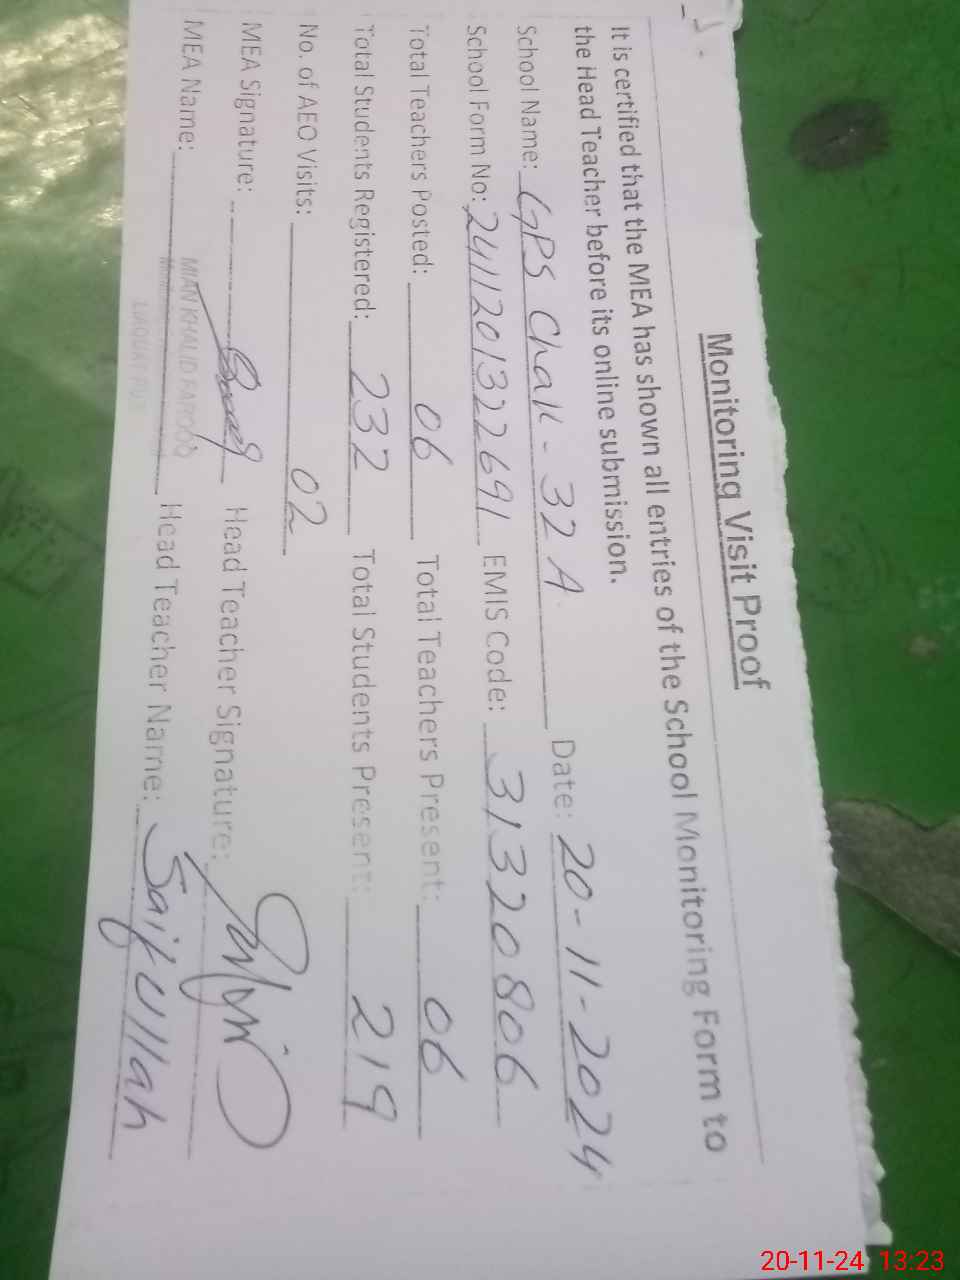 Monitoring Visit Proof
It is certified that the MEA has shown all entries of the School Monitoring Form to
the Head Teacher before its online submission.
School Name: GPS Chak - 32 A Date: 20-11-2024
School Form No: 2411201322691 EMIS Code: 31320806
Total Teachers Posted: 06 Total Teachers Present: 06
Total Students Registered: 232 Total Students Present: 219
No. of AEO Visits: 02
MEA Signature: Head Teacher Signature:
MIAN KHALID FAROOQ
MEA Name: Head Teacher Name: Saif Ullah
LIAQUAT PUR
20-11-24 13:23